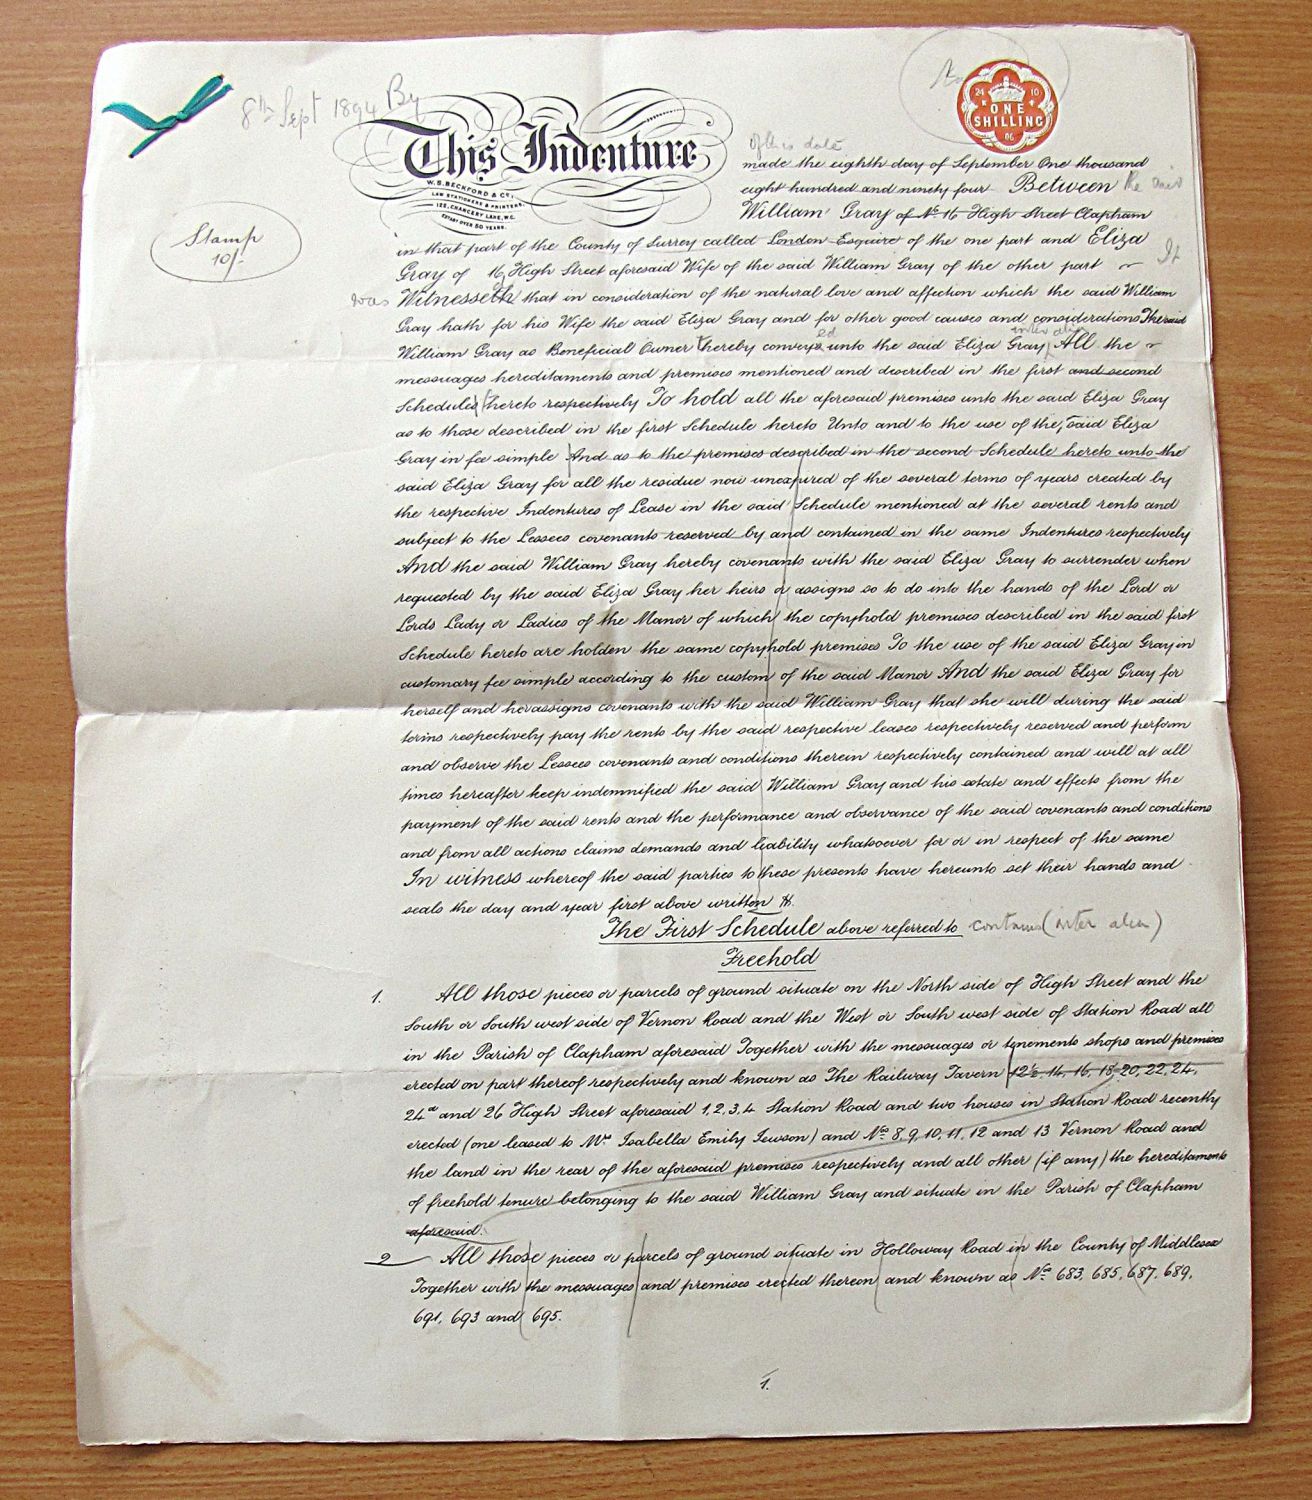 8th Sept 1894 By
This Indenture
W.S. BECKFORD & Co.,
LAW STATIONERS & PRINTERS,
125, CHANCERY LANE, W.C.
ESTABD OVER 50 YEARS.
24 10
ONE
SHILLING
06
Stamp
10/-
of this date
made the eighth day of September One thousand
eight hundred and ninety four Between the said
William Gray of No. 16 High Street Clapham
in that part of the County of Surrey called London Esquire of the one part and Eliza
Gray of 16 High Street aforesaid Wife of the said William Gray of the other part It
was Witnesseth that in consideration of the natural love and affection which the said William
Gray hath for his Wife the said Eliza Gray and for other good causes and considerations The said
ed inter alia
William Gray as Beneficial Owner hereby conveys unto the said Eliza Gray All the
messuages hereditaments and premises mentioned and described in the first and second
Schedules hereto respectively To hold all the aforesaid premises unto the said Eliza Gray
as to those described in the first Schedule hereto Unto and to the use of the said Eliza
Gray in fee simple And as to the premises described in the second Schedule hereto unto the
said Eliza Gray for all the residue now unexpired of the several terms of years created by
the respective Indentures of Lease in the said Schedule mentioned at the several rents and
subject to the Lessees covenants reserved by and contained in the same Indentures respectively
And the said William Gray hereby covenants with the said Eliza Gray to surrender when
requested by the said Eliza Gray her heirs or assigns so to do into the hands of the Lord or
Lords Lady or Ladies of the Manor of which the copyhold premises described in the said first
Schedule hereto are holden the same copyhold premises To the use of the said Eliza Gray in
customary fee simple according to the custom of the said Manor And the said Eliza Gray for
herself and her assigns covenants with the said William Gray that she will during the said
terms respectively pay the rents by the said respective leases respectively reserved and perform
and observe the Lessees covenants and conditions therein respectively contained and will at all
times hereafter keep indemnified the said William Gray and his estate and effects from the
payment of the said rents and the performance and observance of the said covenants and conditions
and from all actions claims demands and liability whatsoever for or in respect of the same
In witness whereof the said parties to these presents have hereunto set their hands and
seals the day and year first above written
The First Schedule above referred to contains (inter alia)
Freehold
1. All those pieces or parcels of ground situate on the North side of High Street and the
South or South west side of Vernon Road and the West or South west side of Station Road all
in the Parish of Clapham aforesaid Together with the messuages or tenements shops and premises
erected on part thereof respectively and known as The Railway Tavern 12½, 14, 16, 18, 20, 22, 24,
24a and 26 High Street aforesaid 1, 2, 3, 4 Station Road and two houses in Station Road recently
erected (one leased to Mrs Isabella Emily Jewson) and Nos. 8, 9, 10, 11, 12 and 13 Vernon Road and
the land in the rear of the aforesaid premises respectively and all other (if any) the hereditaments
of freehold tenure belonging to the said William Gray and situate in the Parish of Clapham
aforesaid.
2 All those pieces or parcels of ground situate in Holloway Road in the County of Middlesex
Together with the messuages and premises erected thereon and known as Nos. 683, 685, 687, 689,
691, 693 and 695.
1.